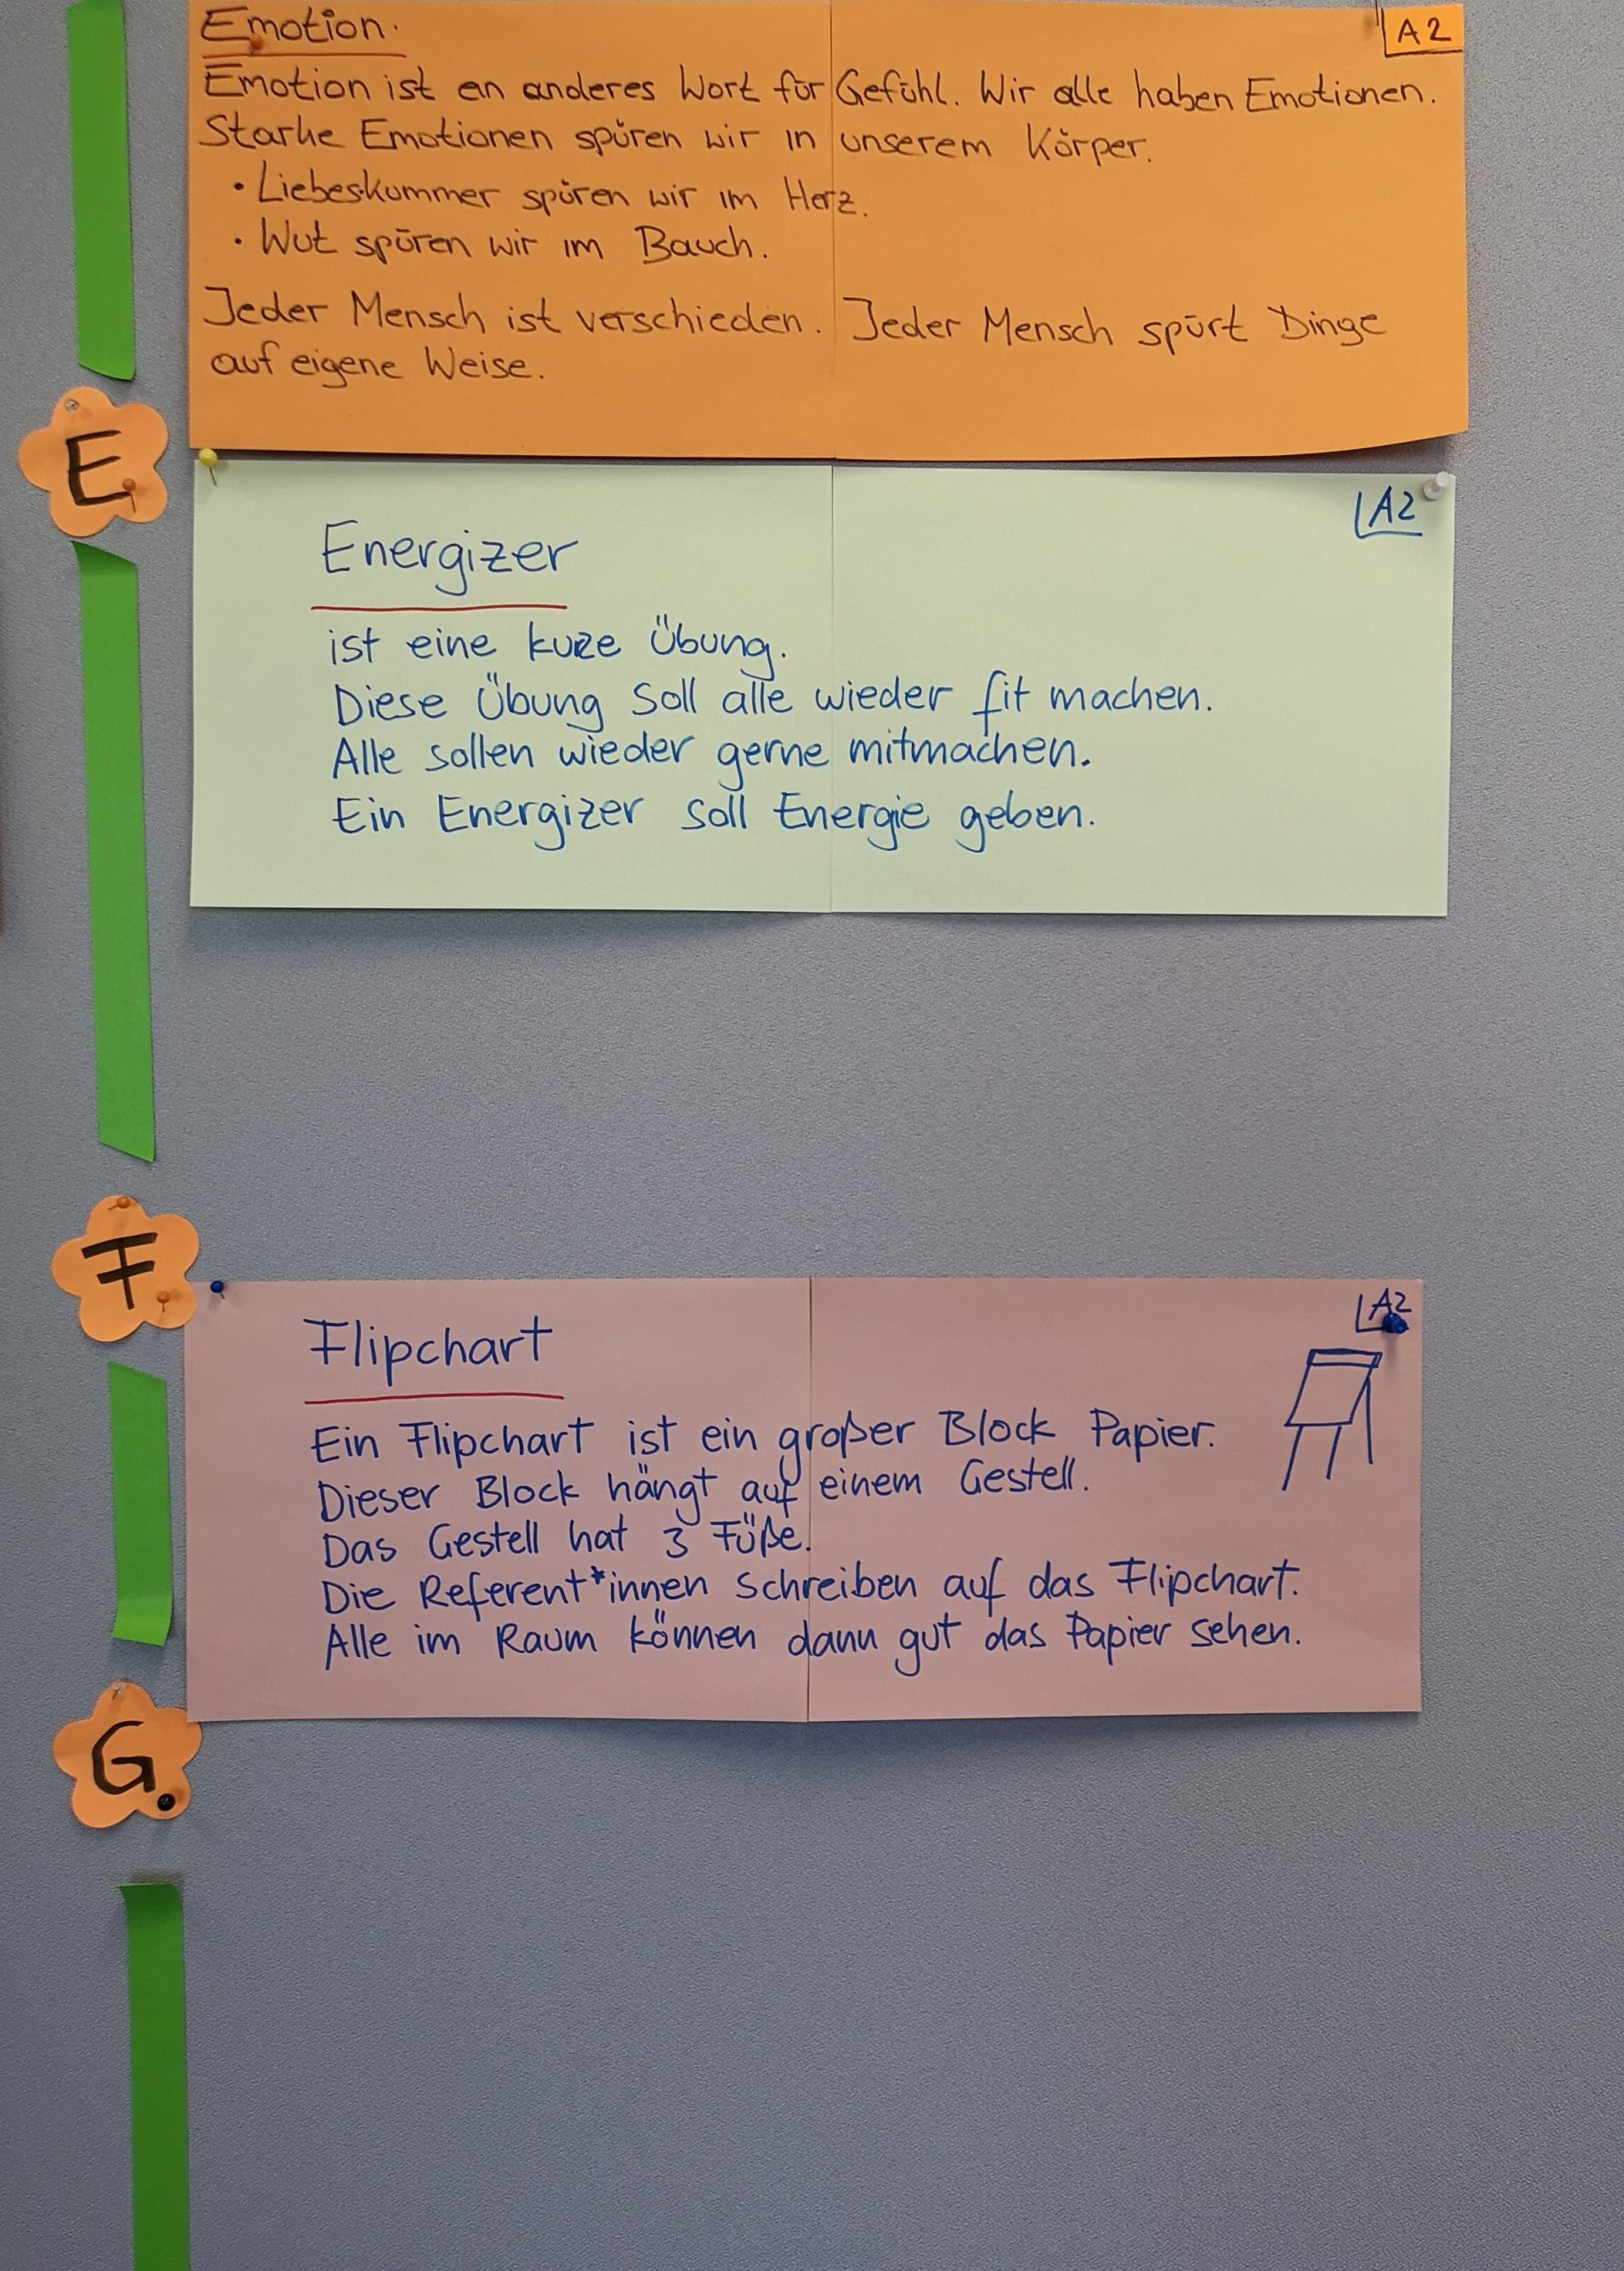 Emotion.
A2
Emotion ist en anderes Wort für Gefühl. Wir alle haben Emotionen.
Starke Emotionen spüren wir in unserem Körper.
• Liebeskummer spüren wir im Herz.
• Wut spüren wir im Bauch.
Jeder Mensch ist verschieden. Jeder Mensch spürt Dinge
auf eigene Weise.
E
A2
Energizer
ist eine kurze Übung.
Diese Übung soll alle wieder fit machen.
Alle sollen wieder gerne mitmachen.
Ein Energizer soll Energie geben.
F
A2
Flipchart
Ein Flipchart ist ein großer Block Papier.
Dieser Block hängt auf einem Gestell.
Das Gestell hat 3 Füße.
Die Referent*innen schreiben auf das Flipchart.
Alle im Raum können dann gut das Papier sehen.
G